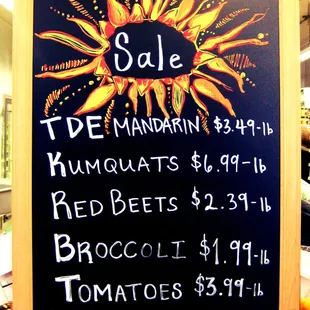 Sale
TDE MANDARIN $3.49-lb
KUMQUATS $6.99-lb
RED BEETS $2.39-lb
BROCCOLI $1.99-lb
TOMATOES $3.99-lb